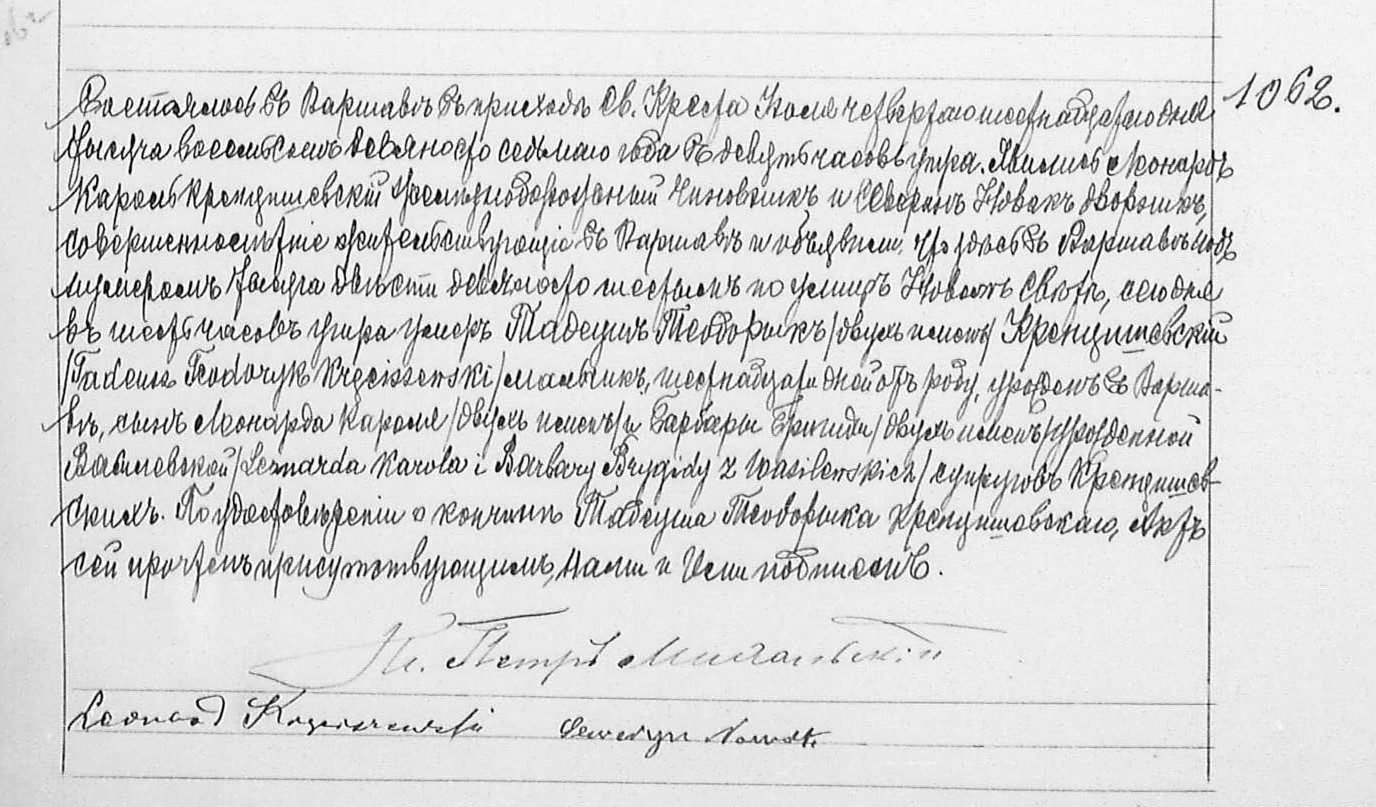 1062.
Состоялось въ Варшавѣ въ приходѣ Св. Креста Іюля четвертаго шестнадцатаго дня
тысяча восемьсотъ девяносто седьмаго года въ девять часовъ утра. Явились Леонардъ
Кароль Кренцишевскій частнослужащій чиновникъ и Северинъ Новакъ дворникъ,
совершеннолѣтніе жительствующіе въ Варшавѣ и объявили, что здѣсь въ Варшавѣ подъ
нумеромъ тысяча двѣсти девяносто шестымъ по улицѣ Новомъ Свѣтѣ, сего дня
въ шесть часовъ утра умеръ Тадеушъ Теодорыкъ /двухъ именъ/ Кренцишевскій
/Tadeusz Teodoryk Kręciszewski/ мальчикъ, шестнадцати дней отъ роду, урожденъ въ Варша-
вѣ, сынъ Леонарда Кароля /двухъ именъ/ и Барбары Бригиды /двухъ именъ/ урожденной
Василевской /Leonarda Karola i Barbary Brygidy z Wasilewskich/ супруговъ Кренцишев-
скихъ. По удостовѣреніи о кончинѣ Тадеуша Теодорыка Кренцишевскаго, Актъ
сей прочтенъ присутствующимъ, Нами и Ими подписанъ.
Кс. Петръ
Leonard Kręciszewski Seweryn Nowak